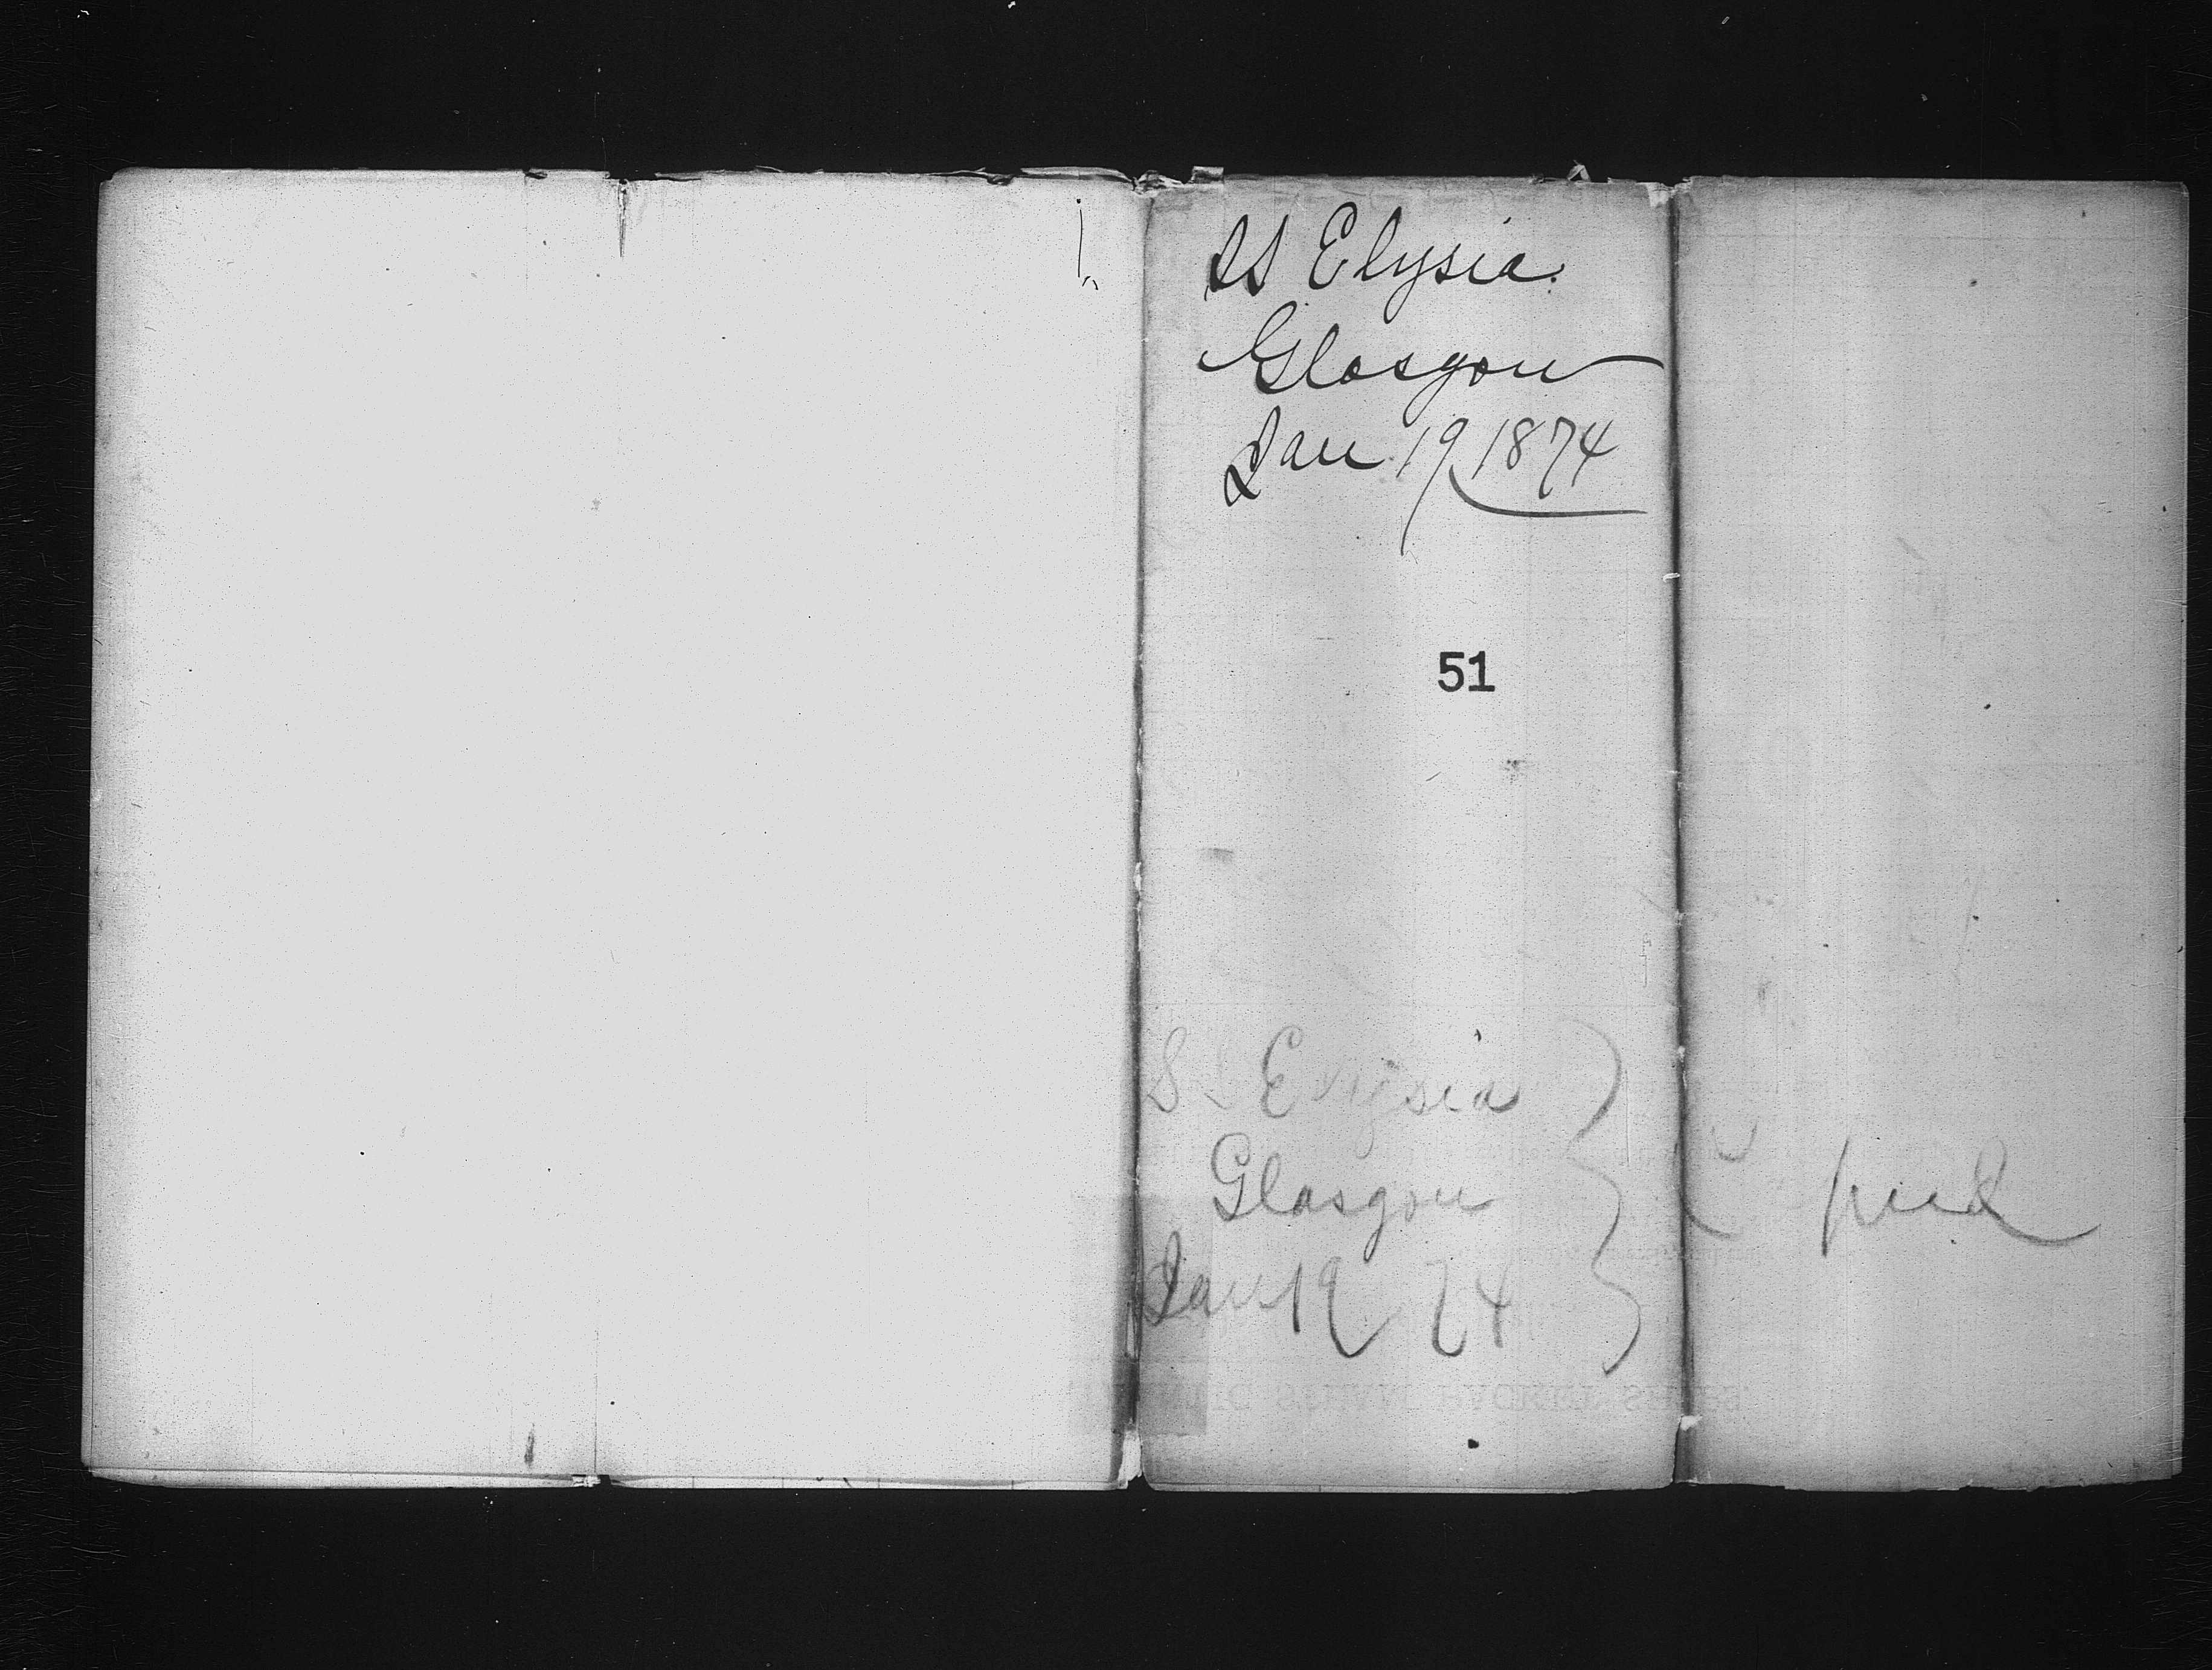 SS Elysia
Glasgow
Jan 19 1874
51
SS Elysia
Glasgow
Jan 19 74